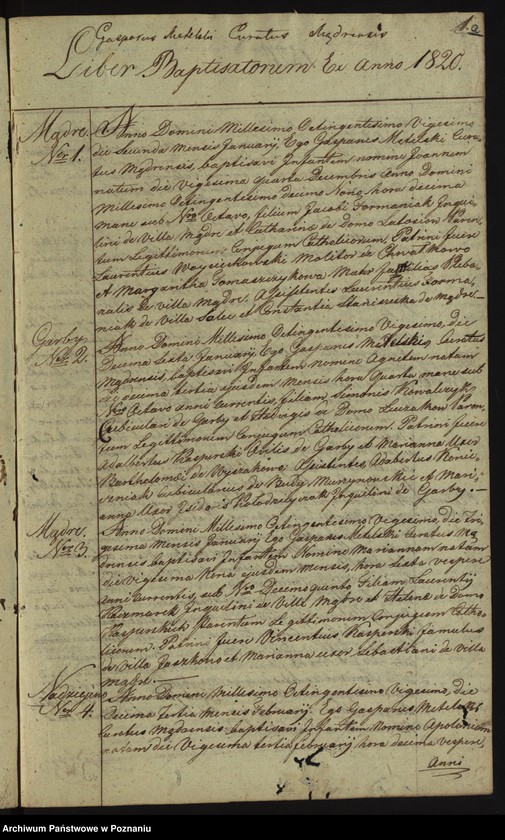 1.a
Gasparus Metelski Curatus Mądrensis
Liber Baptisatorum Ex Anno 1820.
Mądre.
Nro 1.
Anno Domini Millesimo Octingentesimo Vigesimo
die Secunda Mensis Januarij, Ego Gasparus Metelski Cura-
tus Mądrensis, baptisavi Infantem nomine Joannem
natum die vigesima quarta Decembris Anno Domini
Millesimo Octingentesimo decimo Nono, hora decima
mane sub Nro Octavo, filium Jacobi Formaniak Inqui-
lini de Villa Mądre et Catharinae de Domo Ratosion Paren-
tum Legittimorum Conjugum Catholicorum. Patrini fuere
Laurentius Woyciechowski Molitor de Chwałkowo
et Margaritha Tomaszewska Mater Familias Pleba-
nalis de villa Mądre. Assistentes Laurentius Forma-
niak de Villa Sulec et Constantia de Mądre.—
Garby
Nro 2.
Anno Domini Millesimo Octingentesimo Vigesimo, die
Decima Sexta Januarij, Ego Gasparus Metelski, Curatus
Mądrensis, baptisavi Infantem nomine Agnetem natam
decima tertia ejusdem mensis hora Quarta mane sub
Nro Octavo anni Currentis, filiam Simonis Kowalczyk
Cubiculari de Garby et Hedvigis de Domo Paren-
tum Legittimorum Conjugum Catholicorum. Patrini fuere
Adalbertus Kasperski de Garby et Marianna Uxor
Bartholomei de Assistentes, Adalbertus
cubicularius de et Mari-
anna Uxor Isidoris Kołodzieyczak Inquilini de Garby.—
Mądre.
Nro 3.
Anno Domini Millesimo Octingentesimo Vigesimo, die Tri-
gesima Mensis Januarij Ego Gasparus Metelski Curatus Mą-
drensis baptisavi Infantem Nomine Mariannam natam
die Vigesima Nona ejusdem mensis, hora sexta vespere
anni Currentis, sub Nro Decimoquinto, Filiam Laurentij
Kaczmarek Inquilini de Villa Mądre et Helenae de Domo
Parentum Legittimorum Conjugum Catho-
licorum. Patrini fuere Vincentius Kasperski famulus
de Villa et Marianna uxor Sebastiani de Villa
Mądre.
Nadziejewo
Nro 4.
Anno Domini Millesimo Octingentesimo Vigesimo, die
Decima tertia mensis Februarij. Ego Gasparus Metelski
Curatus Mądrensis baptisavi Infantem Nomine Apoloniam
natam die Vigesima tertia februarij hora decima vespere
Anni
Archiwum Państwowe w Poznaniu